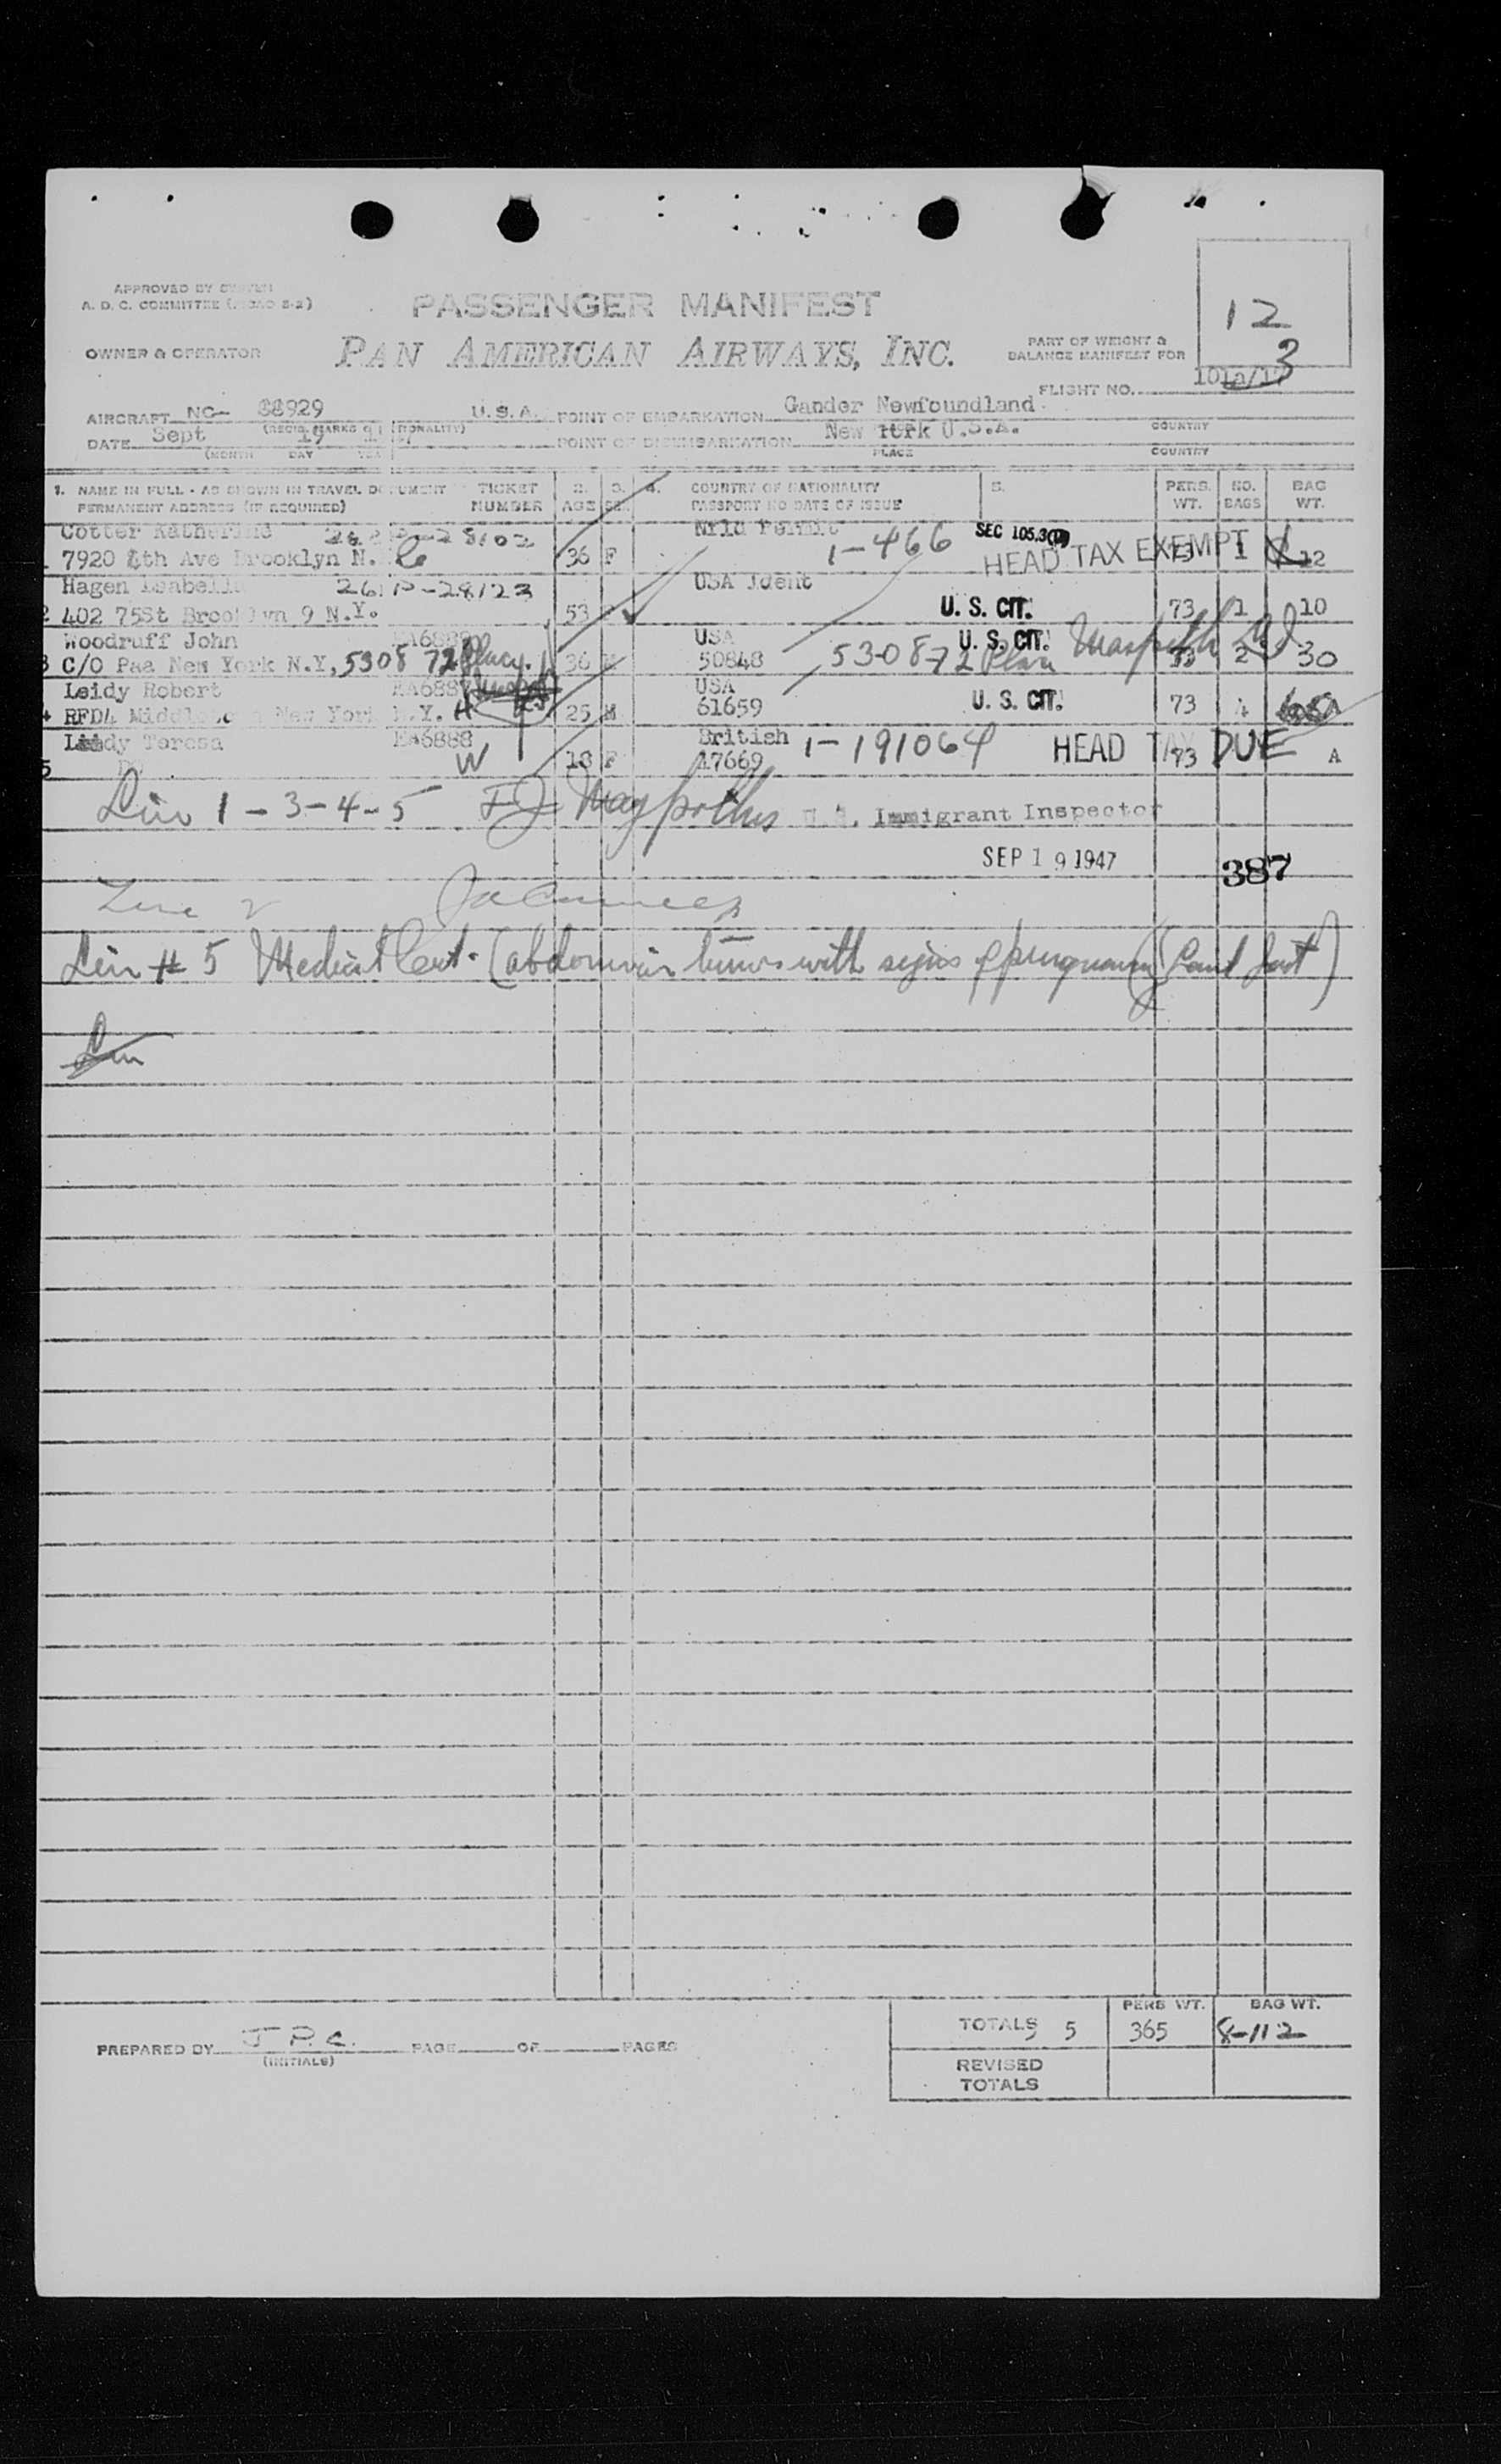 12
3
APPROVED BY
A. D. C. COMMITTEE
PASSENGER MANIFEST
OWNER & OPERATOR
PAN AMERICAN AIRWAYS, INC.
PART OF WEIGHT &
BALANCE MANIFEST FOR
FLIGHT NO.
AIRCRAFT NC- 88929 U.S.A. POINT OF EMBARKATION Gander Newfoundland
DATE Sept 19 POINT OF DISEMBARKATION New York U.S.A. COUNTRY
(MONTH DAY PLACE COUNTRY
1. NAME IN FULL - AS SHOWN IN TRAVEL DOCUMENT TICKET 2. 3. 4. COUNTRY OF NATIONALITY 5. PERS. NO. BAG
PERMANENT ADDRESS (IF REQUIRED) NUMBER AGE PASSPORT NO DATE OF ISSUE WT. BAGS WT.
Cotter Katherine Nfld Permit 1-466 SEC 105.3
7920 4th Ave Brooklyn N. 36 F HEAD TAX EXEMPT 73 1 12
Hagen Isabelle 261P-28123 USA Jdent
2 402 75St Brooklyn 9 N.Y. 53 U. S. CIT. 73 1 10
Woodruff John USA U. S. CIT.
3 C/O Paa New York N.Y, 5308 72 36 M 50848 530872 73 2 30
Leidy Robert USA
4 RFD4 Middletown New York N.Y. H 25 M 61659 U. S. CIT. 73 4
Leidy Teresa EA6888 British 1-191064 HEAD TAX DUE
5 DO W 18 F 17669 73 A
Lin 1-3-4-5 U.S. Immigrant Inspector
SEP 19 1947 387
Line 2
Lin # 5 Medical Cert. (abdominal tumor with signs of pregnancy
Lin
TOTALS 5 PERS WT. 365 BAG WT. 8-112
PREPARED BY J.P.C. PAGE OF PAGES
(INITIALS)
REVISED
TOTALS